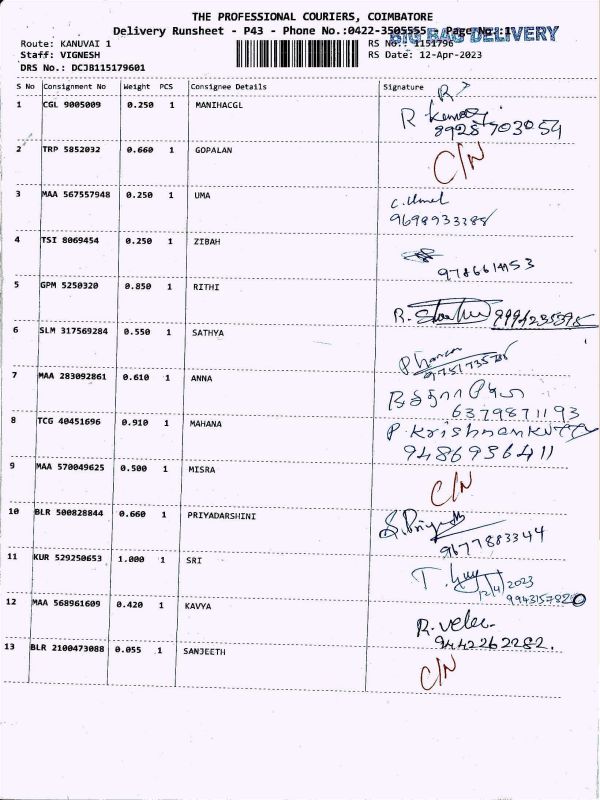 THE PROFESSIONAL COURIERS, COIMBATORE
Delivery Runsheet - P43 - Phone No.:0422-3505555 - Page No.:1
BIG BAG DELIVERY
Route: KANUVAI 1 RS No.: 1151796
Staff: VIGNESH RS Date: 12-Apr-2023
DRS No.: DCJB115179601
S No Consignment No Weight PCS Consignee Details Signature
1 CGL 9005009 0.250 1 MANIHACGL
R
8928703054
2 TRP 5852032 0.660 1 GOPALAN C/N
3 MAA 567557948 0.250 1 UMA
4 TSI 8069454 0.250 1 ZIBAH
5 GPM 5250320 0.850 1 RITHI
6 SLM 317569284 0.550 1 SATHYA
7 MAA 283092861 0.610 1 ANNA
6379871193
8 TCG 40451696 0.910 1 MAHANA P. Krishnankutty
9486936411
9 MAA 570049625 0.500 1 MISRA C/N
10 BLR 500828844 0.660 1 PRIYADARSHINI
9677883344
11 KUR 529250653 1.000 1 SRI
12/4/2023
12 MAA 568961609 0.420 1 KAVYA R. velu
9442262282.
13 BLR 2100473088 0.055 1 SANJEETH C/N